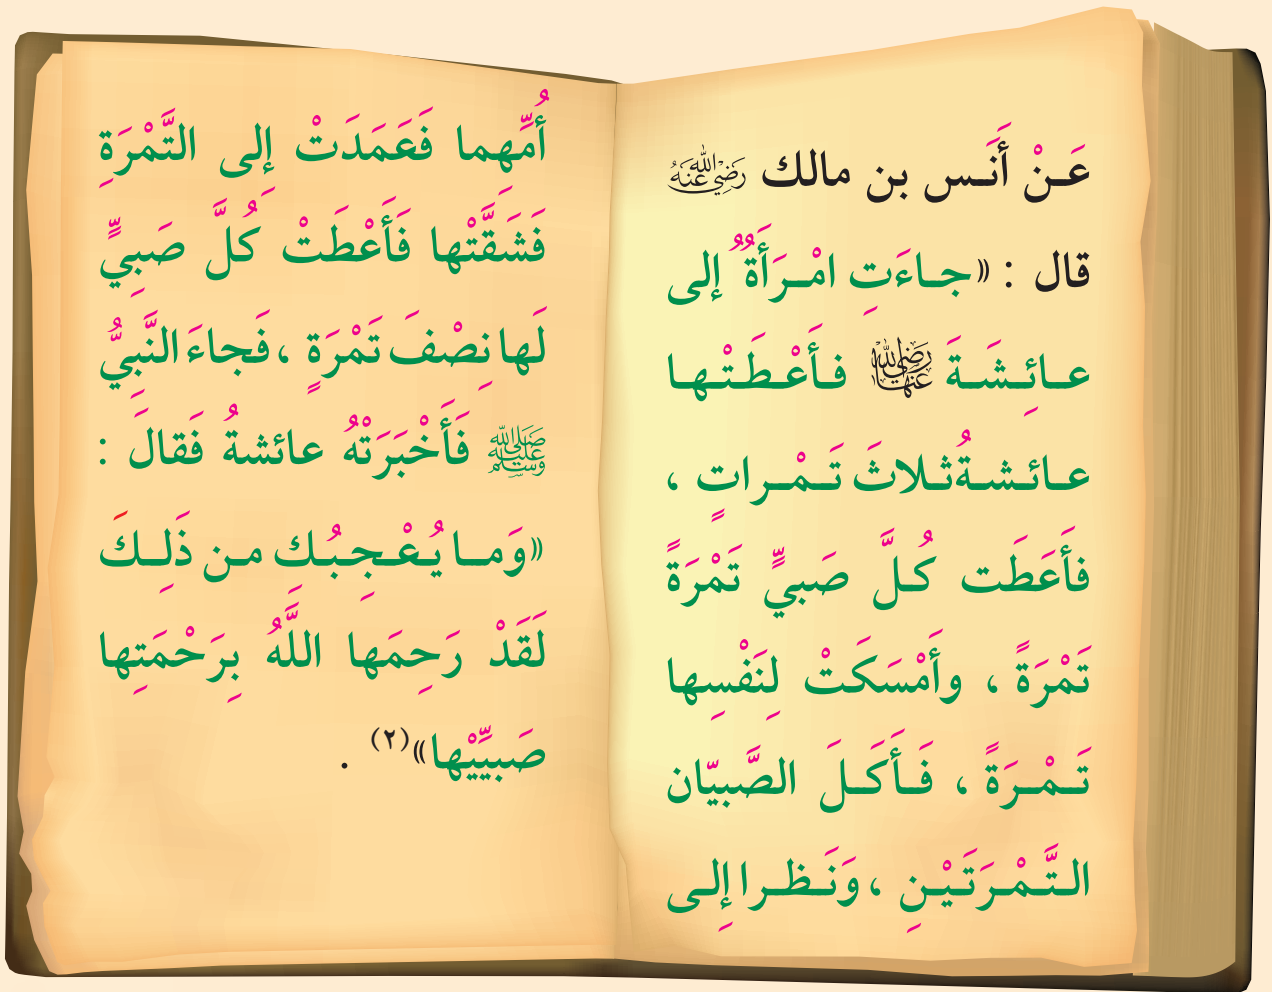 عَـنْ أَنَـس بن مالك رَضِيَ اللَّهُ عَنْهُ
قال : «جـاءَتِ امْـرَأَةٌ إلى
عـائِـشَـةَ رَضِيَ اللَّهُ عَنْها فـأَعْـطَـتْـهـا
عـائـشـةُ ثـلاثَ تَـمْـراتٍ ،
فأَعَطَت كُـلَّ صَبيٍّ تَمْرَةً
تَمْرَةً ، وأَمْسَكَتْ لِنَفْسِها
تَـمْـرَةً ، فَـأَكَـلَ الصَّبيّان
الـتَّـمْـرَتَـيْـنِ ، وَنَـظـرا إِلـى
أُمِّهِما فَعَمَدَتْ إِلى التَّمْرَةِ
فَشَقَّتْها فَأَعْطَتْ كُلَّ صَبِيٍّ
لَها نِصْفَ تَمْرَةٍ ، فَجاءَ النَّبِيُّ
ﷺ فَأَخْبَرَتْهُ عائشةُ فَقالَ :
«وَمـا يُـعْـجِـبُـكِ مـن ذَلِـكَ
لَقَدْ رَحِمَها اللَّهُ بِرَحْمَتِها
صَبيَّيْها»(٢) .